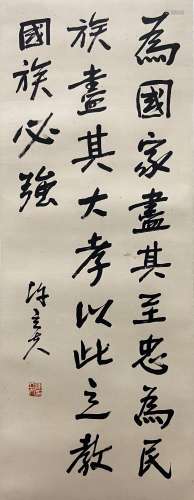 為國家盡其至忠為民
族盡其大孝以此立教
國族必強
陳立夫